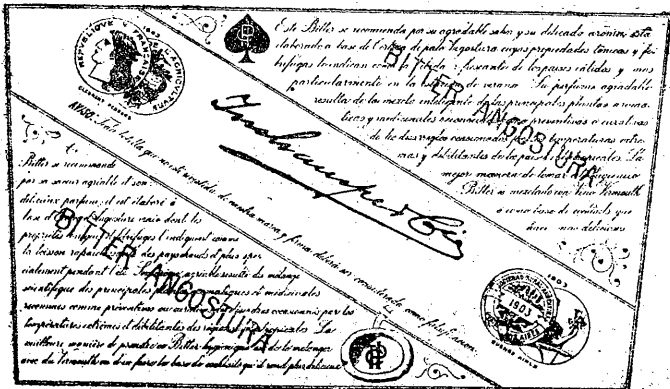 Este Bitter se recomienda por su agradable sabor y su delicado aroma está
elaborado a base de Corteza de palo Angostura cuyas propiedades tónicas y fe-
brífugas lo indican como la bebida refrescante de los países cálidos y mas
particularmente en la estación de verano. Su perfume agradable
resulta de la mezcla inteligente de las principales plantas aromá-
ticas y medicinales reconocidas como preventivas o curativas
de los desarreglos ocasionados por las temperaturas extre-
mas y debilitantes de los países intertropicales. La
mejor manera de tomar el
Bitter es mezclado con Vino Vermouth
ó como base de cocktails que
hace mas delicioso
BITTER ANGOSTURA
REPUBLIQUE FRANÇAISE
1903
AGRICULTURE
P B
AVISO. Toda botilla que no esté revestida de nuestra marca y firma deberá ser considerada como falsificación
y Cia
Ce
Bitter se recommande
par sa saveur agréable et son
délicieux parfum, il est élaboré à
base d'écorce d'Angusture vraie dont les
propriétés toniques et fébrifuges l'indiquent comme
la boisson rafraichissante des pays chauds et plus spé-
cialement pendant l'été. Son parfum agréable résulte du mélange
scientifique des principales plantes aromatiques et médicinales
reconnues comme préventives ou curatives des désordres occasionnés par les
températures extrêmes et débilitantes des régions intertropicales. La
meilleure manière de prendre ce Bitter hygiénique est de le mélanger
avec du Vermouth ou d'en faire la base de cocktails qu'il rend plus délicieux
BITTER ANGOSTURA
1903
1903